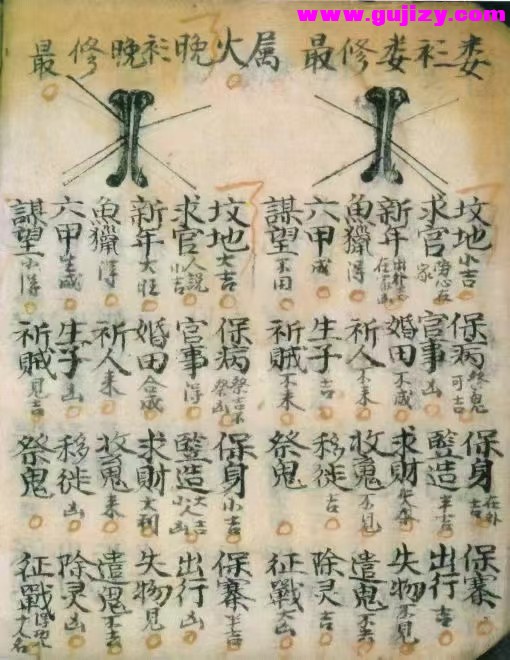 www.gujizy.com
娄衫娄修最
属火晚衫晚修最
坟地小吉 保病鬼可吉 保身在外吉 保寨
求官 官事凶 竪造半吉 出行吉
新年 婚田不成 求財 失物不見
魚獵得 祈人不来 收寃不見 遣鬼不去
六甲成 生子吉 移徙吉 除灵吉
謀望不用 祈賊不来 祭鬼 征戰大凶
坟地大吉 保病祭吉不祭凶 保身小吉 保寨半吉
求官人説小吉 官事得 竪造大吉小人凶 出行凶
新年大旺 婚田合成 求財大利 失物見
魚獵得 祈人来 收寃来 遣鬼不去
六甲生成 生子凶 移徙凶 除灵凶
謀望小得 祈賊見吉 祭鬼 征戰